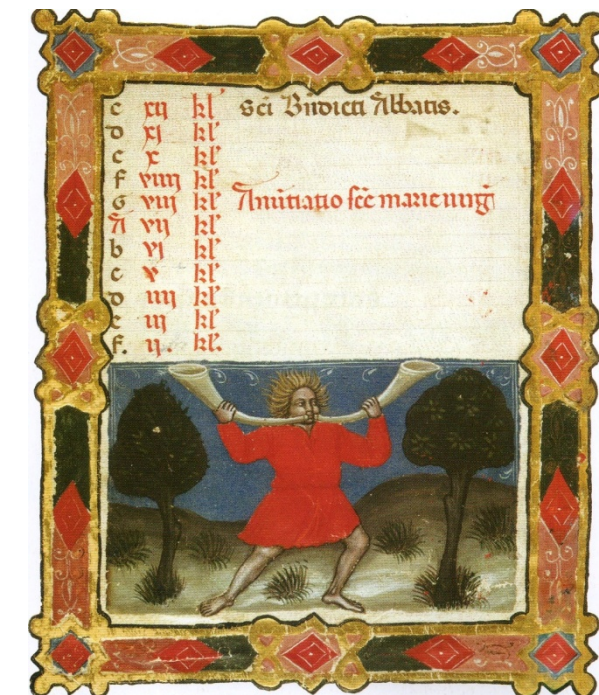 c xij kl' Sci Bndicti Abbatis.
D xj kl'
e x kl'
f viiij kl'
G viij kl' Anūtiatio scē marie uirḡ
A vij kl'
b vj kl'
c v kl'
D iiij kl'
e iij kl'
f. ij. kl'.